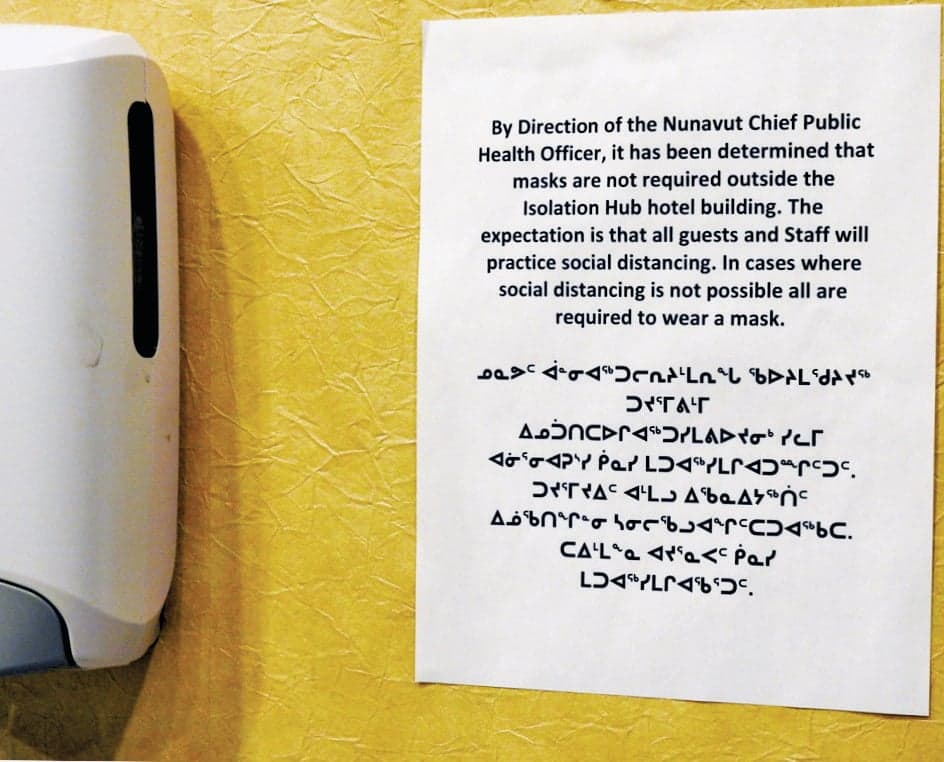 By Direction of the Nunavut Chief Public
Health Officer, it has been determined that
masks are not required outside the
Isolation Hub hotel building. The
expectation is that all guests and Staff will
practice social distancing. In cases where
social distancing is not possible all are
required to wear a mask.
ᓄᓇᕗᑦ ᐋᓐᓂᐊᖅᑐᓕᕆᔨᒻᒪᕆᖓ ᖃᐅᔨᒪᖁᔨᔪᖅ
ᑐᔪᕐᒥᕕᒻᒥ
ᐃᓄᑑᑎᑕᐅᒋᐊᖅᑐᓯᒪᕕᐅᔪᓂᒃ ᓯᓚᒥ
ᐊᓃᕐᓂᐊᕈᔅᓯ ᑮᓇᓯ ᒪᑐᐊᖅᓯᒪᒋᐊᑐᙱᑦᑐᑦ.
ᑐᔪᕐᒥᔪᐃᑦ ᐊᒻᒪᓗ ᐃᖃᓇᐃᔭᖅᑏᑦ
ᐃᓅᖃᑎᖏᓐᓂ ᓴᓂᓕᖃᓗᐊᖏᑦᑕᑐᐊᖅᑲᑕ.
ᑕᐃᒻᒪᓐᓇ ᐊᔪᕐᓇᐸᑦ ᑮᓇᓯ
ᒪᑐᐊᖅᓯᒪᒋᐊᖃᖅᑐᑦ.